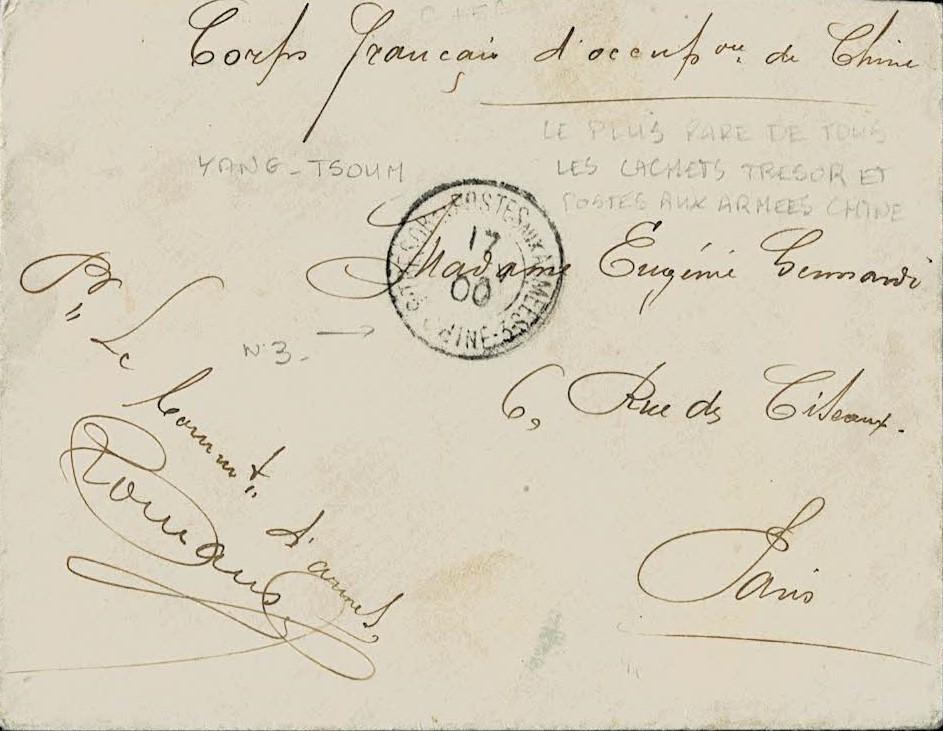 Corps français d'occupon. de Chine
LE PLUS RARE DE TOUS
YANG-TSOUM
LES CACHETS TRESOR ET
POSTES AUX ARMEES CHINE
TRESOR ET POSTES AUX ARMEES
17
00
CHINE-3
Madame Eugénie
Pr Le
N.3-
6, Rue des Ciseaux.
Commt.
d'armes
Paris